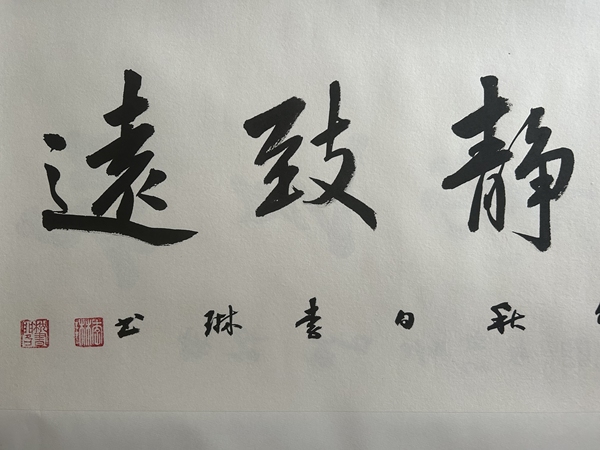 静致遠
秋日素琳书